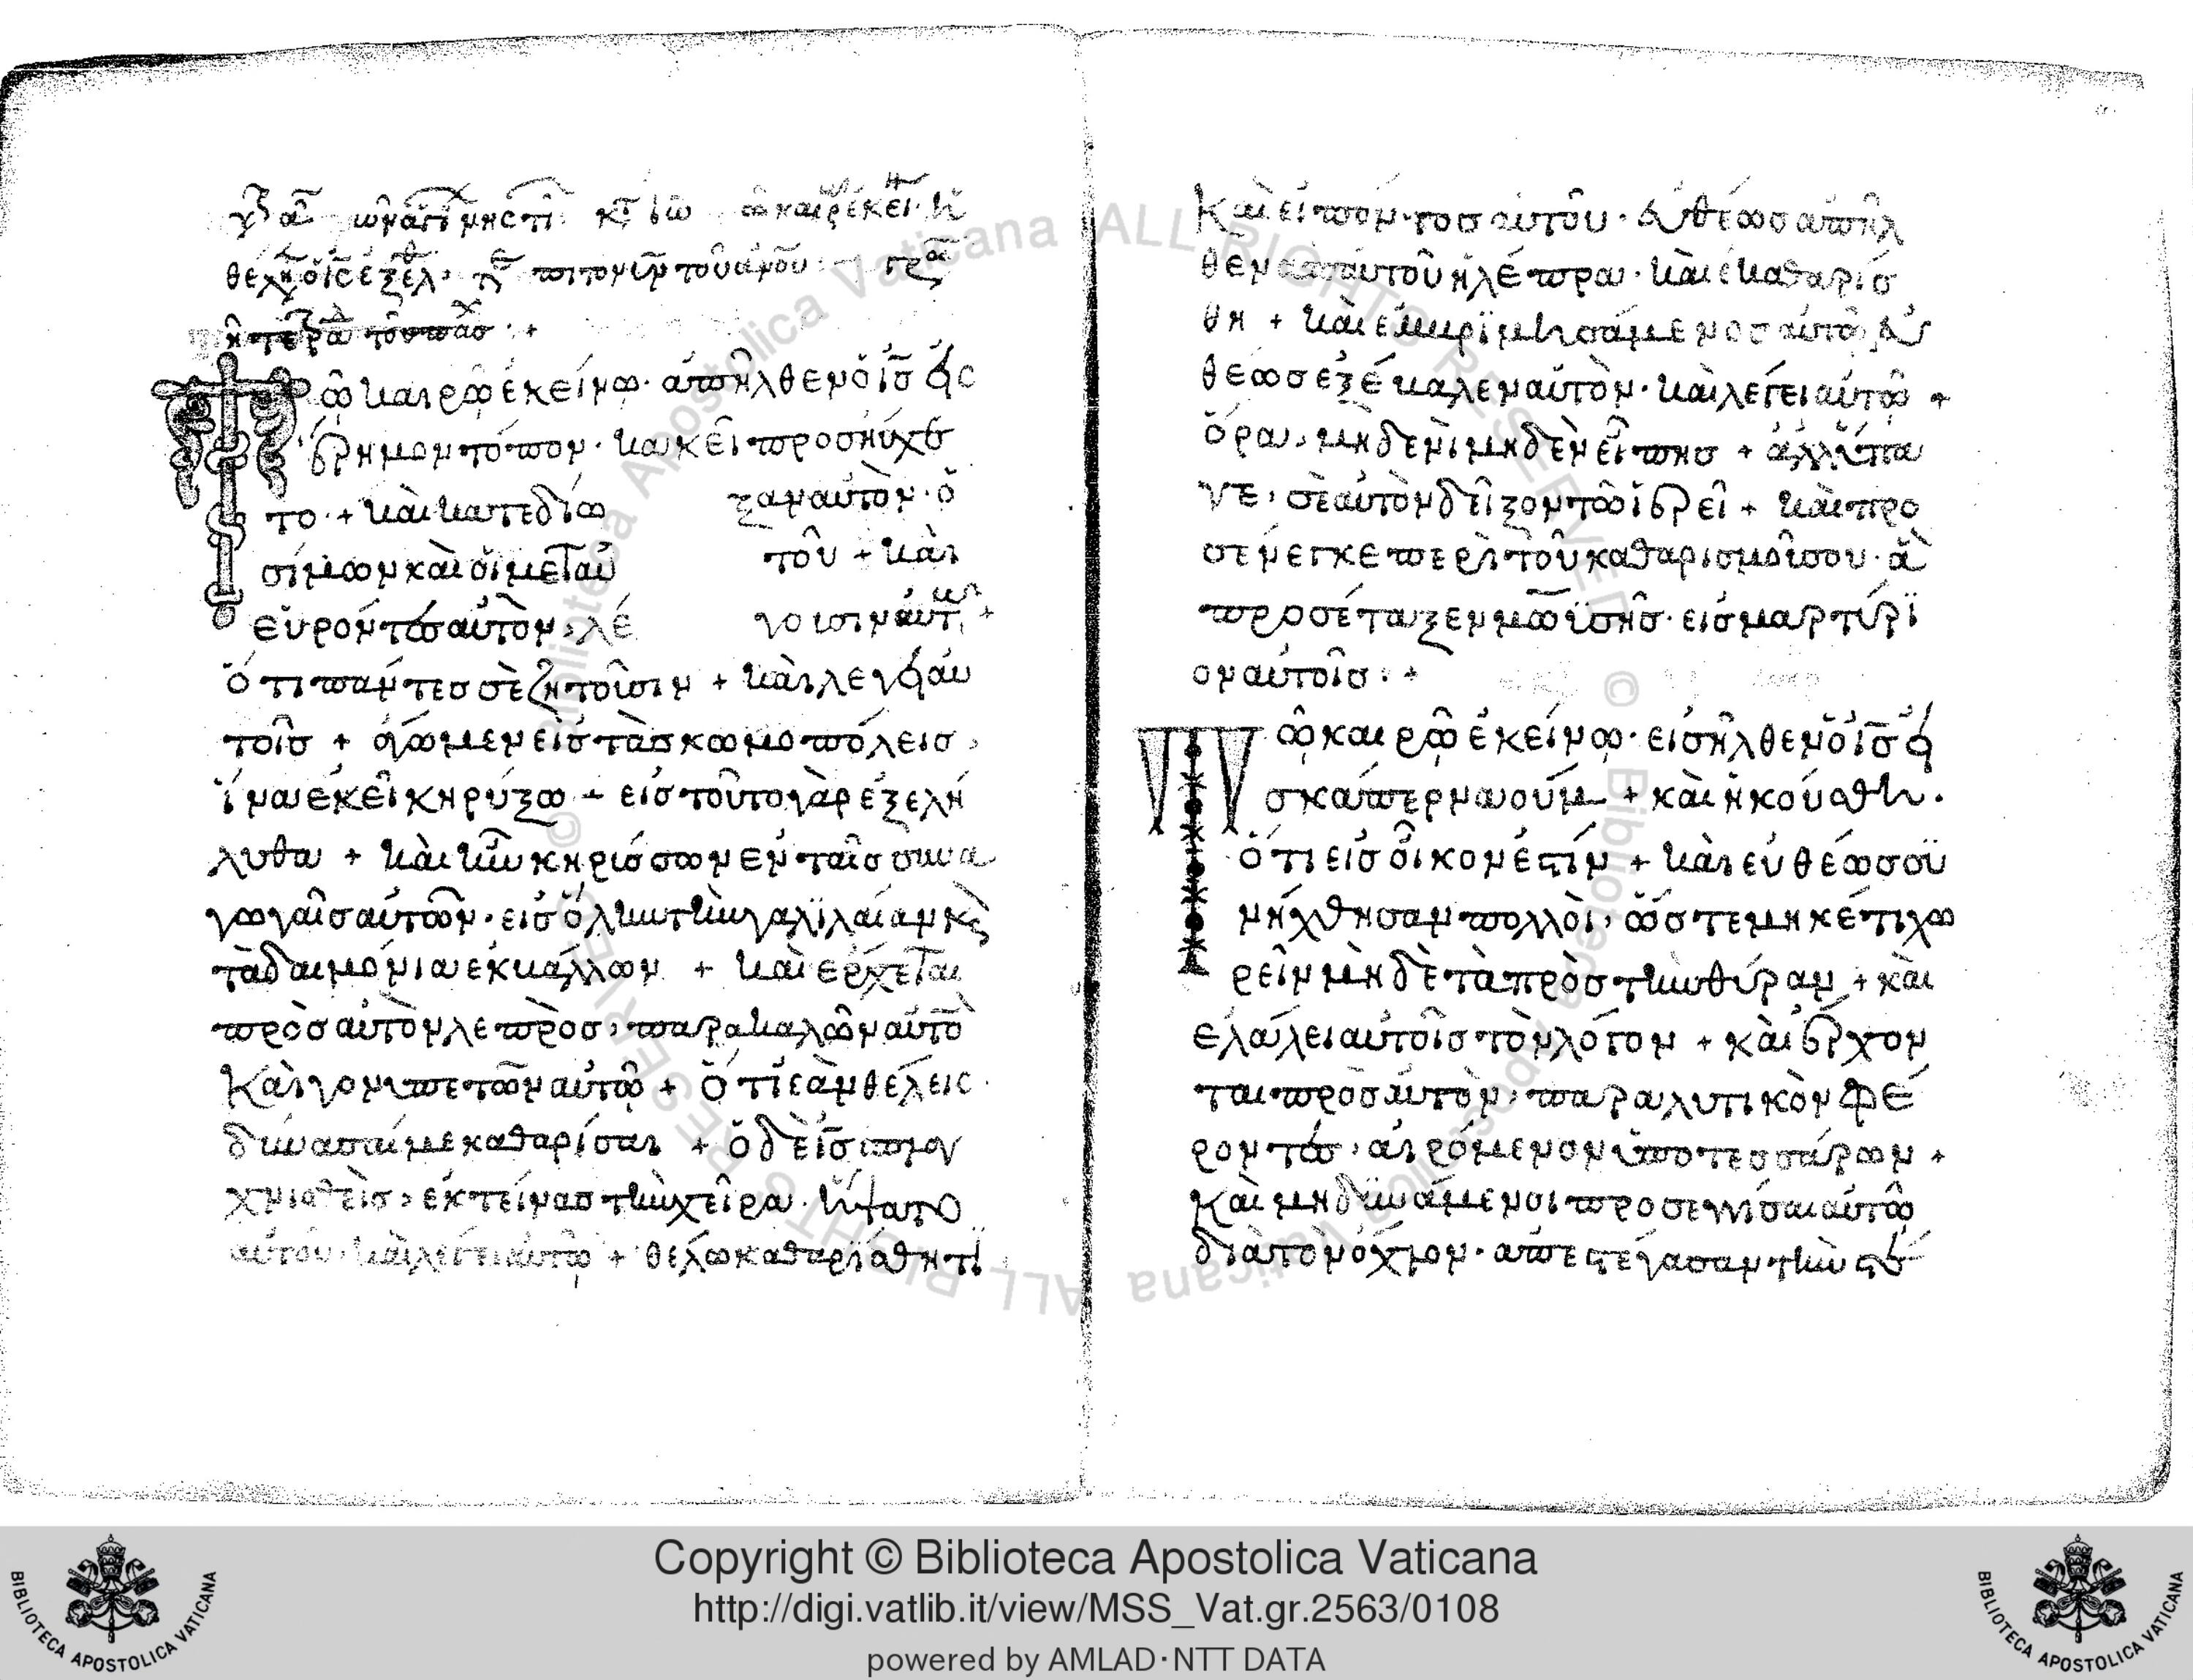 τῶ καιρῶ ἐκείνω· ἀπῆλθεν ὁ ἰς εἰς
ἔρημον τόπον· κακεῖ προσηύχε
το + καὶ κατεδίω ξαν αὐτὸν· ὁ
σίμων καὶ οἱ μετ αὐ τοῦ + καὶ
εὑρόντες αὐτὸν, λέ γουσιν αὐτῶ +
ὅτι πάντες σὲ ζητοῦσιν + καὶ λέγει αὐ
τοῖς + ἄγωμεν εἰς τὰς κωμοπόλεις,
ἵνα ἐκεῖ κηρύξω + εἰς τοῦτο γὰρ ἐξελή
λυθα + καὶ ἦν κηρίσσων ἐν ταῖς συνα
γωγαῖς αὐτῶν· εἰς ὅλην τὴν γαλϊλαίαν κὲ
τὰ δαιμόνια ἐκβάλλων + καὶ ἔρχεται
πρὸς αὐτὸν λεπρὸς, παρακαλῶν αὐτὸ
Καὶ γονυπετῶν αὐτῶ + ὅτι ἐὰν θέλεις
δύνασαί με καθαρίσαι + ὁ δὲ ις σπλαγ
χνισθεὶς, ἐκτείνας τὴν χεῖρα· ἥψατο
αὐτοῦ· καὶ λέγει αὐτῶ + θέλω καθαρίσθητϊ
Καὶ εἰπόντος αὐτοῦ· εὐθέως ἀπῆλ
θεν ἀπ αὐτοῦ ἡ λέπρα· καὶ ἐκαθαρίσ
θη + καὶ ἐμβρϊμησάμενος αὐτῶ εὐ
θέως ἐξέβαλεν αὐτὸν· καὶ λέγει αὐτῶ +
ὅρα, μηδενὶ μηδὲν εἴπης + ἀλλ ὕπα
γε, σεαυτὸν δεῖξον τῶ ἱερεῖ + καὶ προ
σένεγκε περὶ τοῦ καθαρισμοῦ σου· ἃ
προσέταξεν μωϋσῆς· εἰς μαρτύρϊ
ον αὐτοῖς· +
Τῶ καιρῶ ἐκείνω· εἰσῆλθεν ὁ ις εἰ
ς καπερναούμ + καὶ ἠκούσθη·
ὅτι εἰς οἶκον ἐστίν + καὶ εὐθέως σϋ
νήχθησαν πολλοὶ, ὥστε μηκέτι χω
ρεῖν μὴ δὲ τὰ πρὸς τὴν θύραν + καὶ
ἐλάλει αὐτοῖς τὸν λόγον + καὶ ἔρχον
ται πρὸς αὐτὸν, παραλυτικὸν φέ
ροντες, αἰρόμενον ὑπὸ τεσσάρων +
Καὶ μὴ δϋνάμενοι προσεγγίσαι αὐτῶ
διὰ τὸν όχλον· ἀπεστέγασαν τὴν στέ
Copyright © Biblioteca Apostolica Vaticana
http://digi.vatlib.it/view/MSS_Vat.gr.2563/0108
powered by AMLAD·NTT DATA
BIBLIOTECA APOSTOLICA VATICANA
BIBLIOTECA APOSTOLICA VATICANA